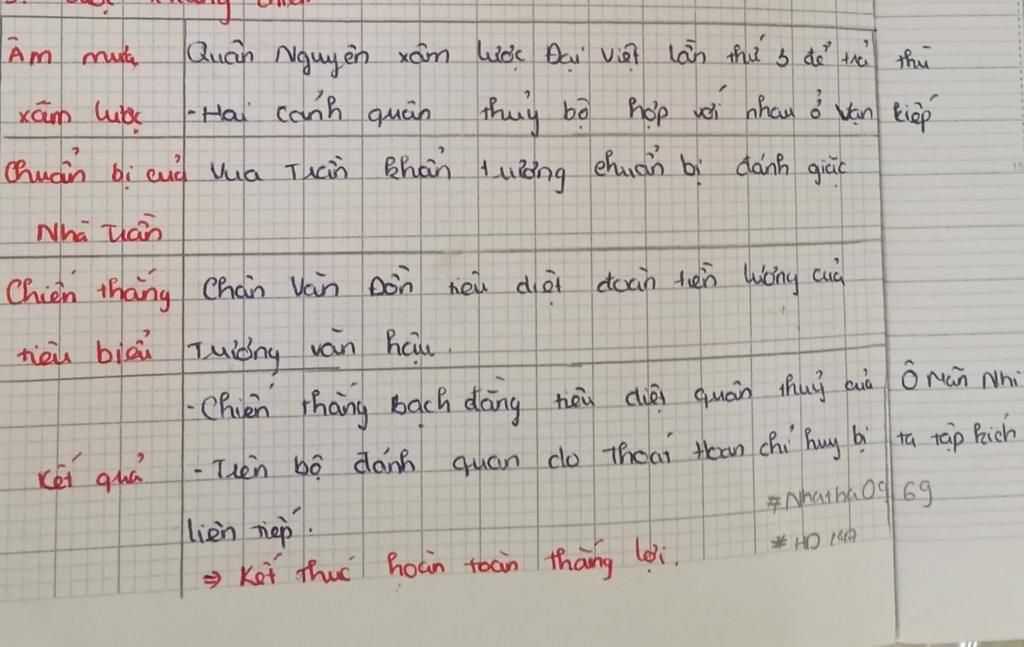 Âm mưu Quân Nguyên xâm lược Đại Việt lần thứ 3 để trả thù
xâm lược - Hai cánh quân thuỷ bộ hợp với nhau ở Vạn Kiếp
Chuẩn bị của Vua Trần khẩn trương chuẩn bị đánh giặc
Nhà Trần
Chiến thắng Chân Vân Đồn tiêu diệt đoàn tiền lương của
tiêu biểu Trương Văn Hậu.
- Chiến thắng Bạch đằng tiêu diệt quân thuỷ của Ô Mã Nhi
Kết quả - Trên bộ đánh quan do Thoái Hoan chỉ huy bị ta tập kích
#Nhatha0969
liên tiếp.
* HD
⇒ Kết thúc hoàn toàn thắng lợi.